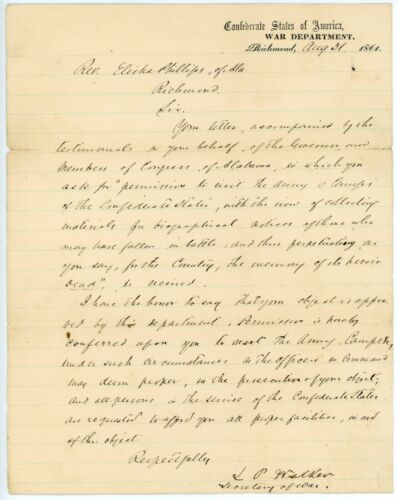 Confederate States of America,
WAR DEPARTMENT,
Richmond, Aug 31 1861.
Rev. Elisha Phillips, of Ala
Richmond.
Sir.
Your letter, accompanied by the
testimonials in your behalf, of the Governor, and
Members of Congress, of Alabama, in which you
ask for "permission to visit the Army & Camps
of the Confederate States, with the view of collecting
materials for biographical notices of those who
may have fallen in battle, and thus perpetuating, as
you say, for the Country, the memory of its heroic
dead", is received.
I have the honor to say that your object is appro
ved by this department, & permission is hereby
conferred upon you to visit the Army, Camps &c,
under such circumstances as the officers in command
may deem proper, in the prosecution of your object;
and all persons in the service of the Confederate States
are requested to afford you all proper facilities, in aid
of this object.
Respectfully
L. P. Walker
Secretary of War.